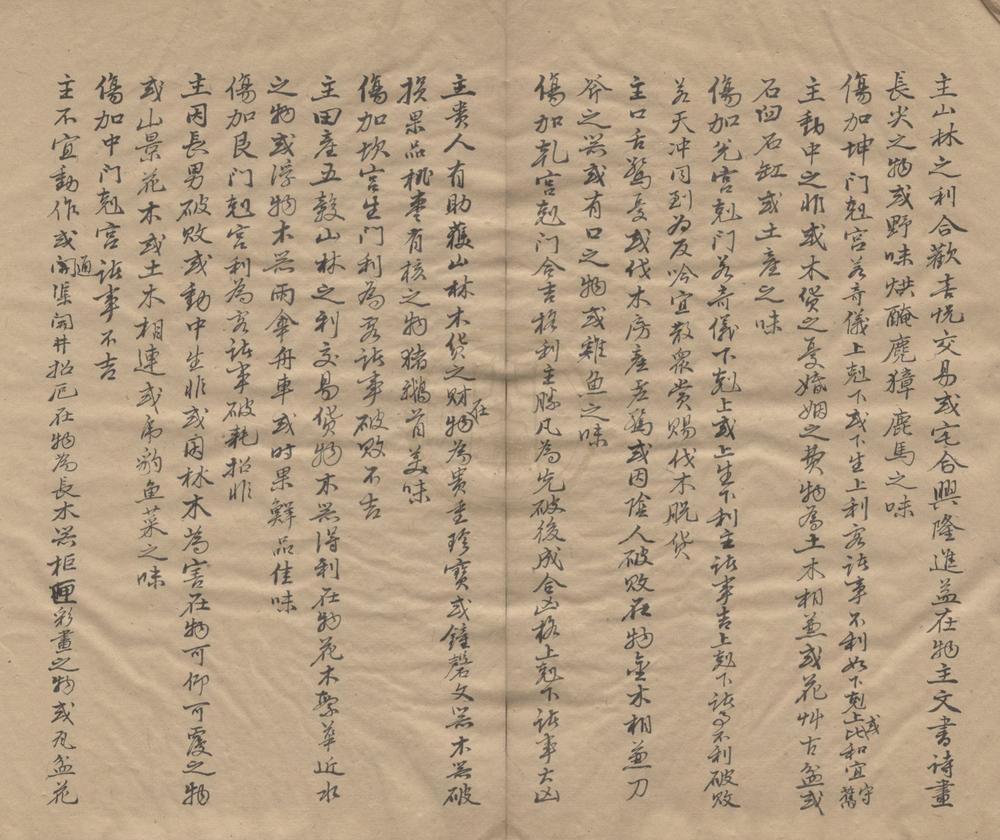 主山林之利合歡喜悦交易或宅合興隆進益在物主文書詩畫
長炎之物或野味烘醃麂獐鹿馬之味
傷加坤門尅宮若奇儀上尅下或下生上利客諸事不利如下尅上或比和宜守舊
主動中之非或木貨之憂婚姻之費物為土木相兼或花艸古盆或
石凹石缸或土產之味
傷加兌宮尅門若奇儀下尅上或上生下利主諸事吉上尅下諸事不利破敗
若天冲同到為反吟宜散眾賞賜伐木脱貨
主口舌驚憂或伐木房產虛驚或因陰人破敗在物金木相兼刀
斧之器或有口之物或雞魚之味
傷加乾宮尅門合吉格利主勝凡為先破後成合凶格上尅下諸事大凶
主貴人有助獲山林木貨之財在物為貴重珍寶或鐘磬文器木器破
损果品桃棗有核之物猪鵝首美味
傷加坎宮生門利為客諸事破敗不吉
主田產五穀山林之利交易貨物木器得利在物花木繁華近水
之物或浮物木器雨傘舟車或时果鮮品佳味
傷加艮門尅宮利為客諸事破耗招非
主因長男破敗或動中生非或因林木為害在物可仰可覆之物
或山景花木或土木相連或虎豹魚菜之味
傷加中門尅宮諸事不吉
主不宜動作或開通渠開井招厄在物為長木器柜匣彩畫之物或瓦盆花